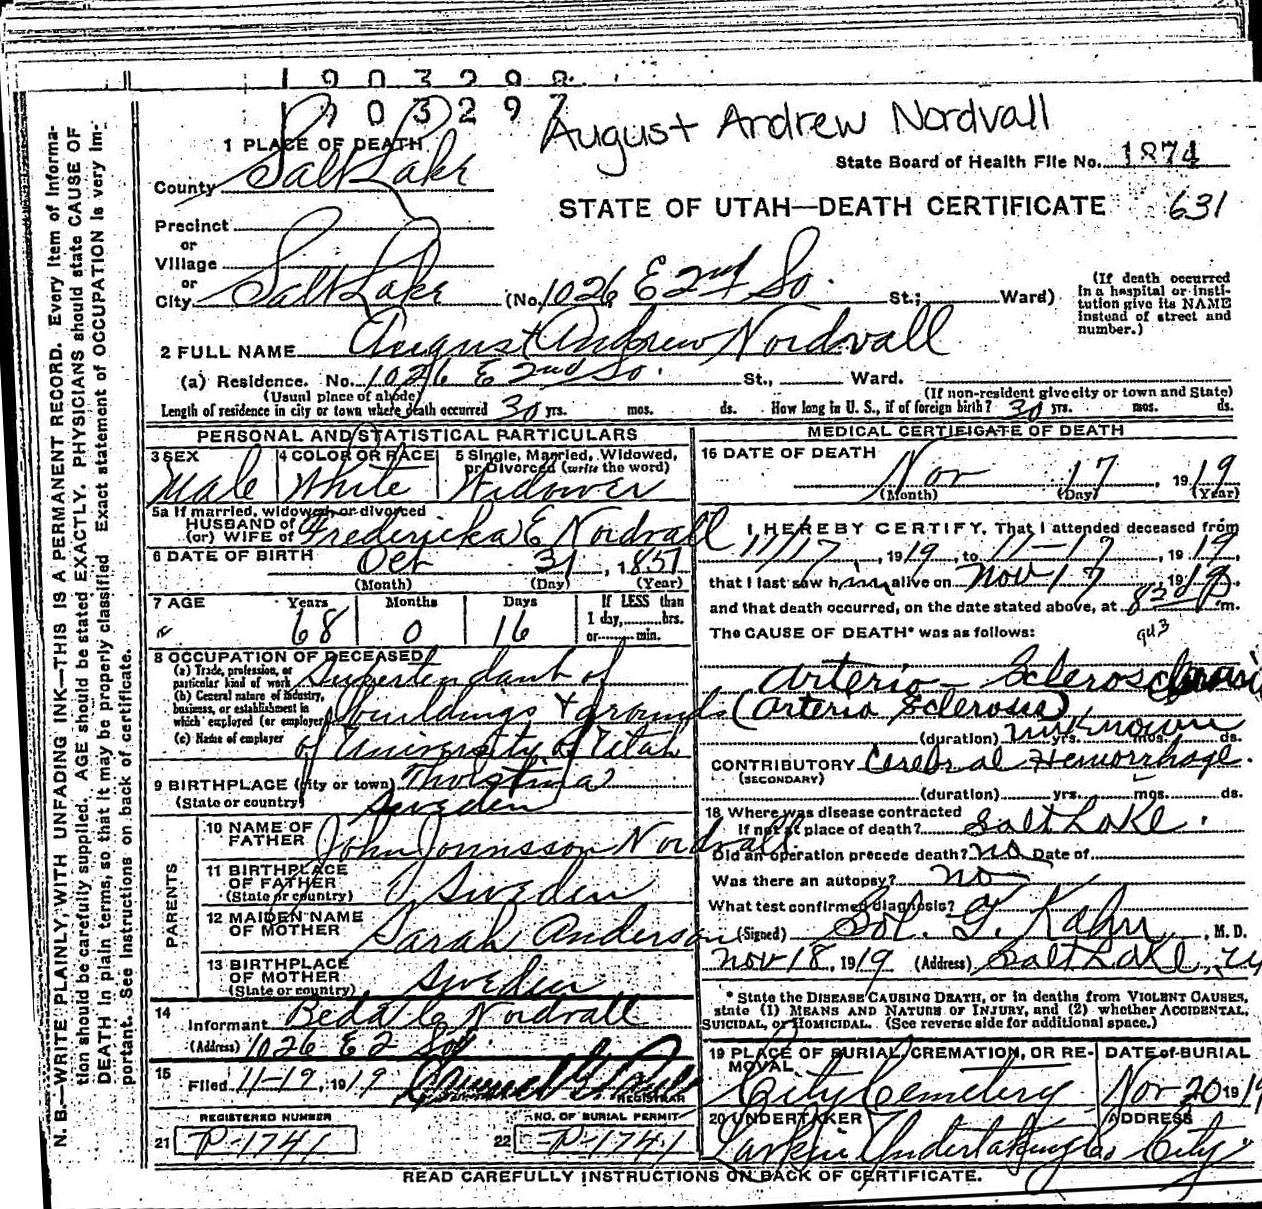 1903298
903297
August Andrew Nordvall
1 PLACE OF DEATH
State Board of Health File No. 1874
County Salt Lake
STATE OF UTAH—DEATH CERTIFICATE 631
Precinct
or
Village
or
City Salt Lake (No. 1026 E 2nd So. St.; Ward)
(If death occurred in a hospital or insti-
tution give its NAME
instead of street and
number.)
2 FULL NAME August Andrew Nordvall
(a) Residence. No. 1026 E 2nd So. St., Ward.
(Usual place of abode) (If non-resident give city or town and State)
Length of residence in city or town where death occurred 30 yrs. mos. ds. How long in U. S., if of foreign birth? 30 yrs. mos. ds.
PERSONAL AND STATISTICAL PARTICULARS
3 SEX Male
4 COLOR OR RACE White
5 Single, Married, Widowed,
or Divorced (write the word)
Widower
5a If married, widowed or divorced
HUSBAND of
(or) WIFE of Fredericka E Nordvall
6 DATE OF BIRTH Oct 31, 1851
(Month) (Day) (Year)
7 AGE Years Months Days If LESS than
68 0 16 1 day, hrs.
or min.
8 OCCUPATION OF DECEASED
(a) Trade, profession, or
particular kind of work
(b) General nature of industry,
business, or establishment in
which employed (or employer)
(c) Name of employer
Supertendant of
buildings & grounds
of University of Utah
9 BIRTHPLACE (city or town)
(State or country) Sweden
PARENTS
10 NAME OF
FATHER John Jonnsson Nordvall
11 BIRTHPLACE
OF FATHER
(State or country) Sweden
12 MAIDEN NAME
OF MOTHER Sarah Anderson
13 BIRTHPLACE
OF MOTHER
(State or country) Sweden
14
Informant Beda C Nordvall
(Address) 1026 E 2 So.
15
Filed 11-19, 1919
REGISTRAR
REGISTERED NUMBER NO. OF BURIAL PERMIT
21 P-1741 22 P-1741
MEDICAL CERTIFICATE OF DEATH
16 DATE OF DEATH
Nov 17, 1919
(Month) (Day) (Year)
I HEREBY CERTIFY, That I attended deceased from
11/17, 1919, to 11-17, 1919,
that I last saw him alive on Nov 17, 1919.
and that death occurred, on the date stated above, at m.
The CAUSE OF DEATH* was as follows:
Arterio-Sclerosis
(Arterio Sclerosis)
(duration) unknown yrs. mos. ds.
CONTRIBUTORY Cerebral Hemorrhage.
(SECONDARY)
(duration) yrs. mos. ds.
18 Where was disease contracted
If not at place of death? Salt Lake.
Did an operation precede death? no Date of
Was there an autopsy? no
What test confirmed diagnosis?
(Signed) Sol. G. Kahn, M. D.
Nov 18, 1919 (Address) Salt Lake,
* State the DISEASE CAUSING DEATH, or in deaths from VIOLENT CAUSES,
state (1) MEANS AND NATURE OF INJURY, and (2) whether ACCIDENTAL,
SUICIDAL, or HOMICIDAL. (See reverse side for additional space.)
19 PLACE OF BURIAL, CREMATION, OR RE-
MOVAL City Cemetery
DATE of BURIAL
Nov 20 1919
20 UNDERTAKER Larkin Undertaking Co
ADDRESS City
READ CAREFULLY INSTRUCTIONS ON BACK OF CERTIFICATE.
N. B.—WRITE PLAINLY, WITH UNFADING INK—THIS IS A PERMANENT RECORD. Every item of informa-
tion should be carefully supplied. AGE should be stated EXACTLY. PHYSICIANS should state CAUSE OF
DEATH in plain terms, so that it may be properly classified Exact statement of OCCUPATION is very im-
portant. See instructions on back of certificate.